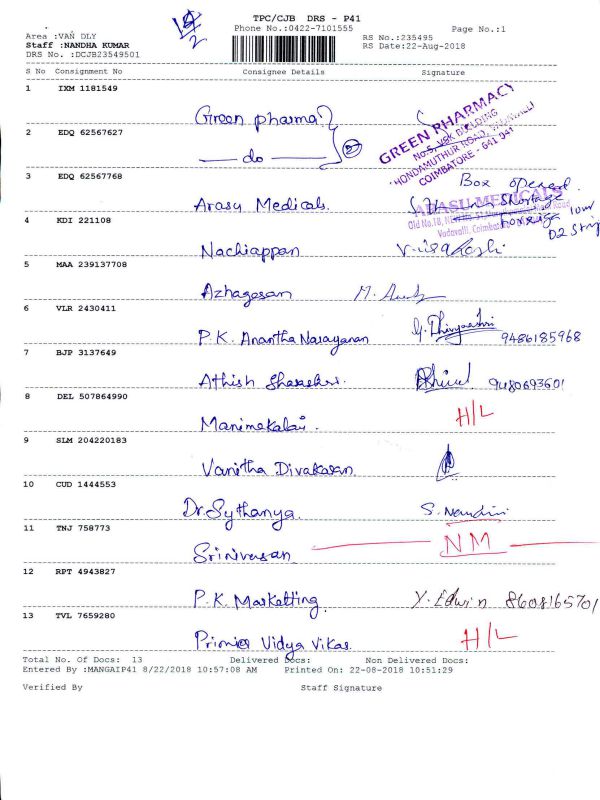 TPC/CJB DRS - P41
Phone No.:0422-7101555
Page No.:1
Area :VAN DLY
Staff :NANDHA KUMAR
DRS No. :DCJB23549501
RS No.:235495
RS Date:22-Aug-2018
S No Consignment No Consignee Details Signature
1 IXM 1181549
Green pharma
GREEN PHARMACY
2 EDQ 62567627
do
COIMBATORE - 641 041
3 EDQ 62567768
Box opened
Arasu Medicals.
ARASU MEDICALS
Shortage
4 KDI 221108
Nachiappan
5 MAA 239137708
Azhagesan
6 VLR 2430411
P.K. Anantha Narayanan 9486185968
7 BJP 3137649
Athish 9480693601
8 DEL 507864990
Manimekalai. H/L
9 SLM 204220183
Vanitha Divakaran
10 CUD 1444553
Dr. Sythanya. S. Nandini
11 TNJ 758773
Srinivasan NM
12 RPT 4943827
P.K. Marketting. Y. Edwin 8608165701
13 TVL 7659280
Vidya Vikas H/L
Total No. Of Docs: 13 Delivered Docs: Non Delivered Docs:
Entered By :MANGAIP41 8/22/2018 10:57:08 AM Printed On: 22-08-2018 10:51:29
Verified By Staff Signature